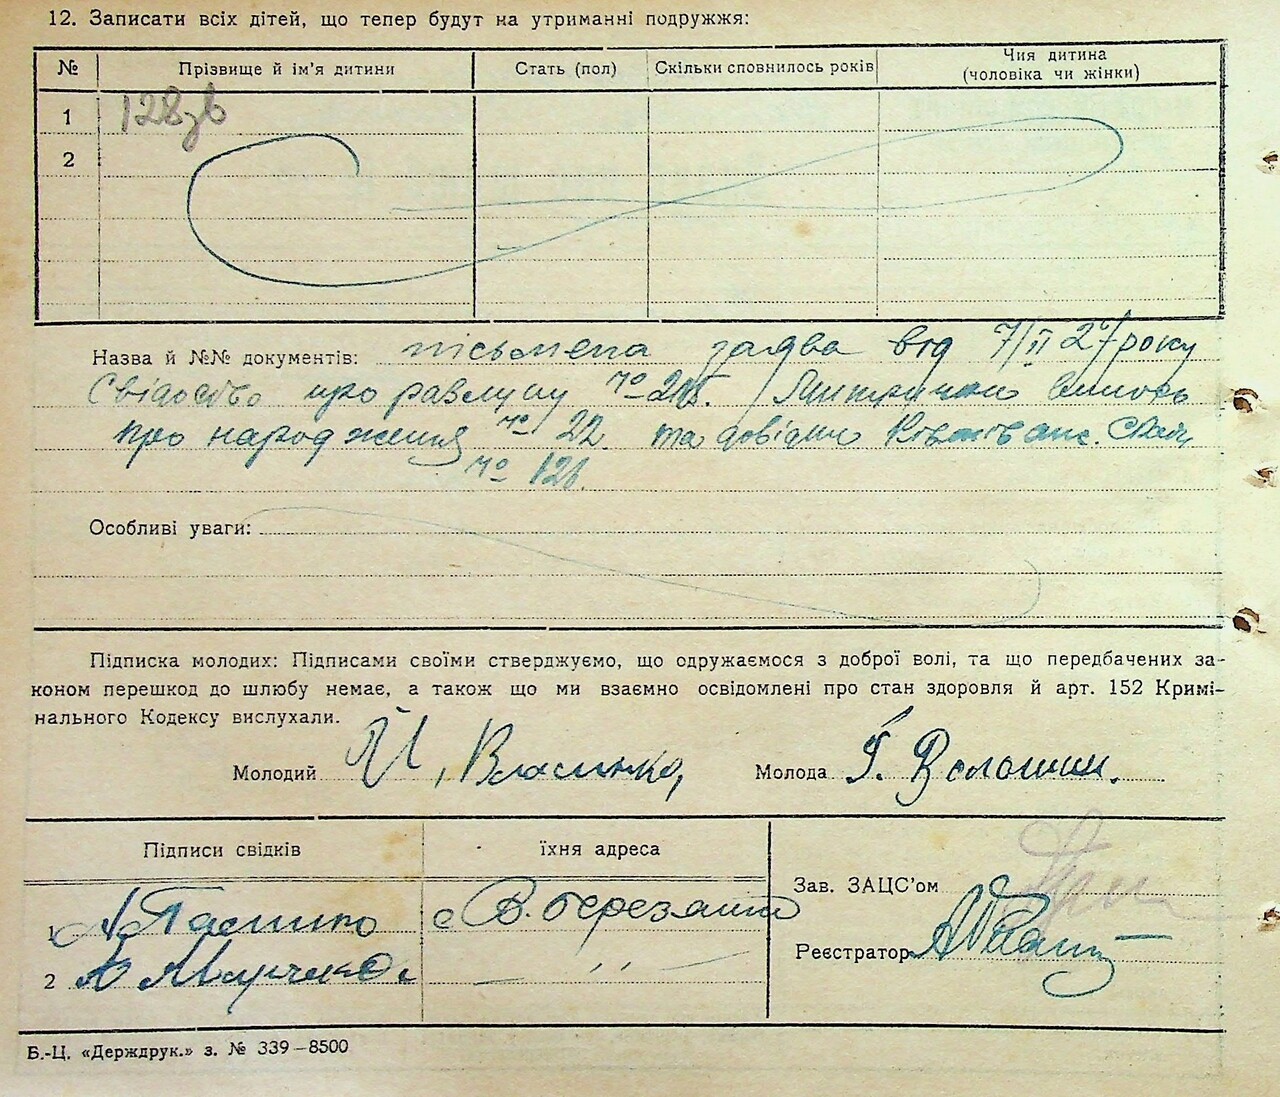 12. Записати всіх дітей, що тепер будут на утриманні подружжя:
№ Прізвище й ім'я дитини Стать (пол) Скільки сповнилось років Чия дитина (чоловіка чи жінки)
1 128зв
2
Назва й №№ документів: письмена заява від 7/II 27 року
про
про народження № 22 та довідки
№ 126.
Особливі уваги:
Підписка молодих: Підписами своїми стверджуємо, що одружаємося з доброї волі, та що передбачених за-
коном перешкод до шлюбу немає, а також що ми взаємно освідомлені про стан здоровля й арт. 152 Кримі-
нального Кодексу вислухали.
Молодий Й, Власенко, Молода Г. Волошин.
Підписи свідків їхня адреса
Зав. ЗАЦС'ом
1 с В. березанка
Реєстратор
2 — ,, —
Б.-Ц. «Держдрук.» з. № 339–8500